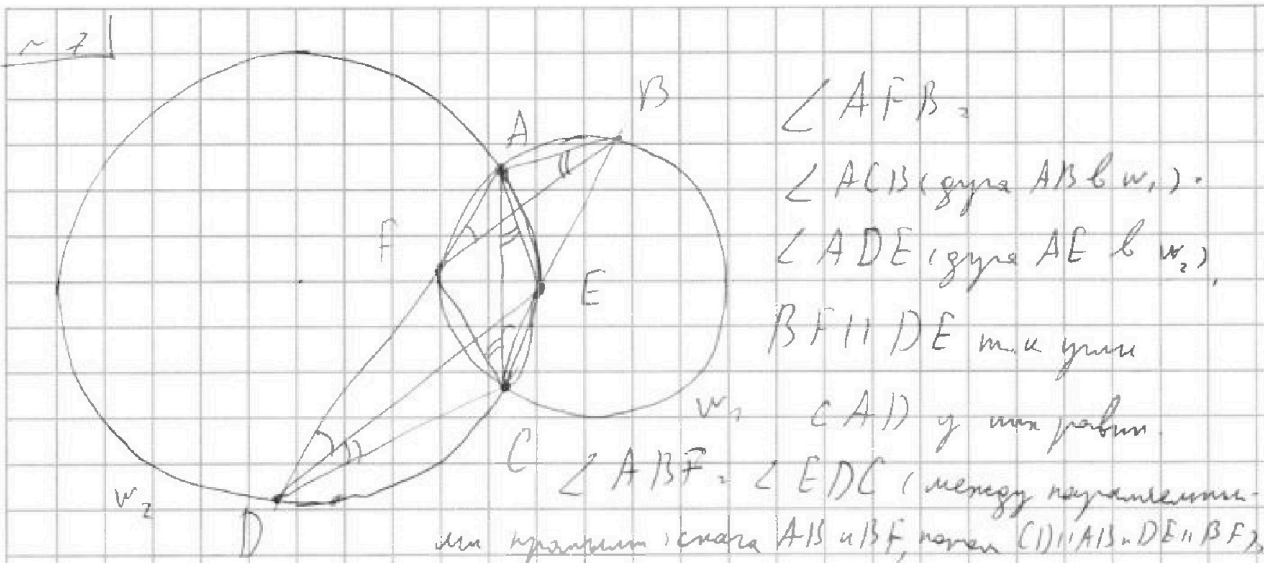 ~ 7
A
B
F
E
C
D
w₁
w₂
∠AFB =
∠ACB (дуга AB в w₁) =
∠ADE (дуга AE в w₂),
BF || DE т.к углы
с AD у них равны.
∠ABF = ∠EDC (между параллельны-
ми прямыми, сначала AB и BF, потом CD || AB и DE || BF),